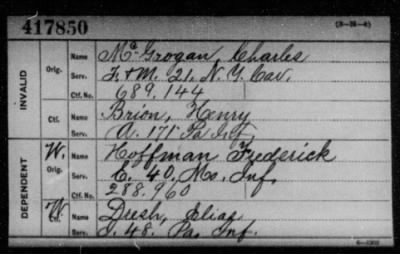 417850 (3—26—6)
INVALID
Orig. Name McGrogan, Charles
Serv. F.+M. 21. N.Y. Cav.
Ctf. No. 689,144
Ctf. Name Brion, Henry
Serv. A. 171 Pa Inf.
DEPENDENT
W. Orig. Name Hoffman Frederick
Serv. C. 40, Mo. Inf.
Ctf. No. 288,960
W. Ctf. Name Dresh, Elias
Serv. I. 48. Pa. Inf.